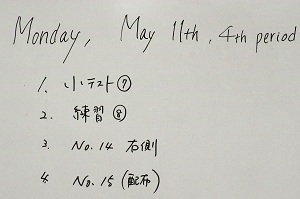 Monday, May 11th, 4th period
1. 小テスト⑦
2. 練習⑧
3. No.14 右側
4. No.15 (配布)